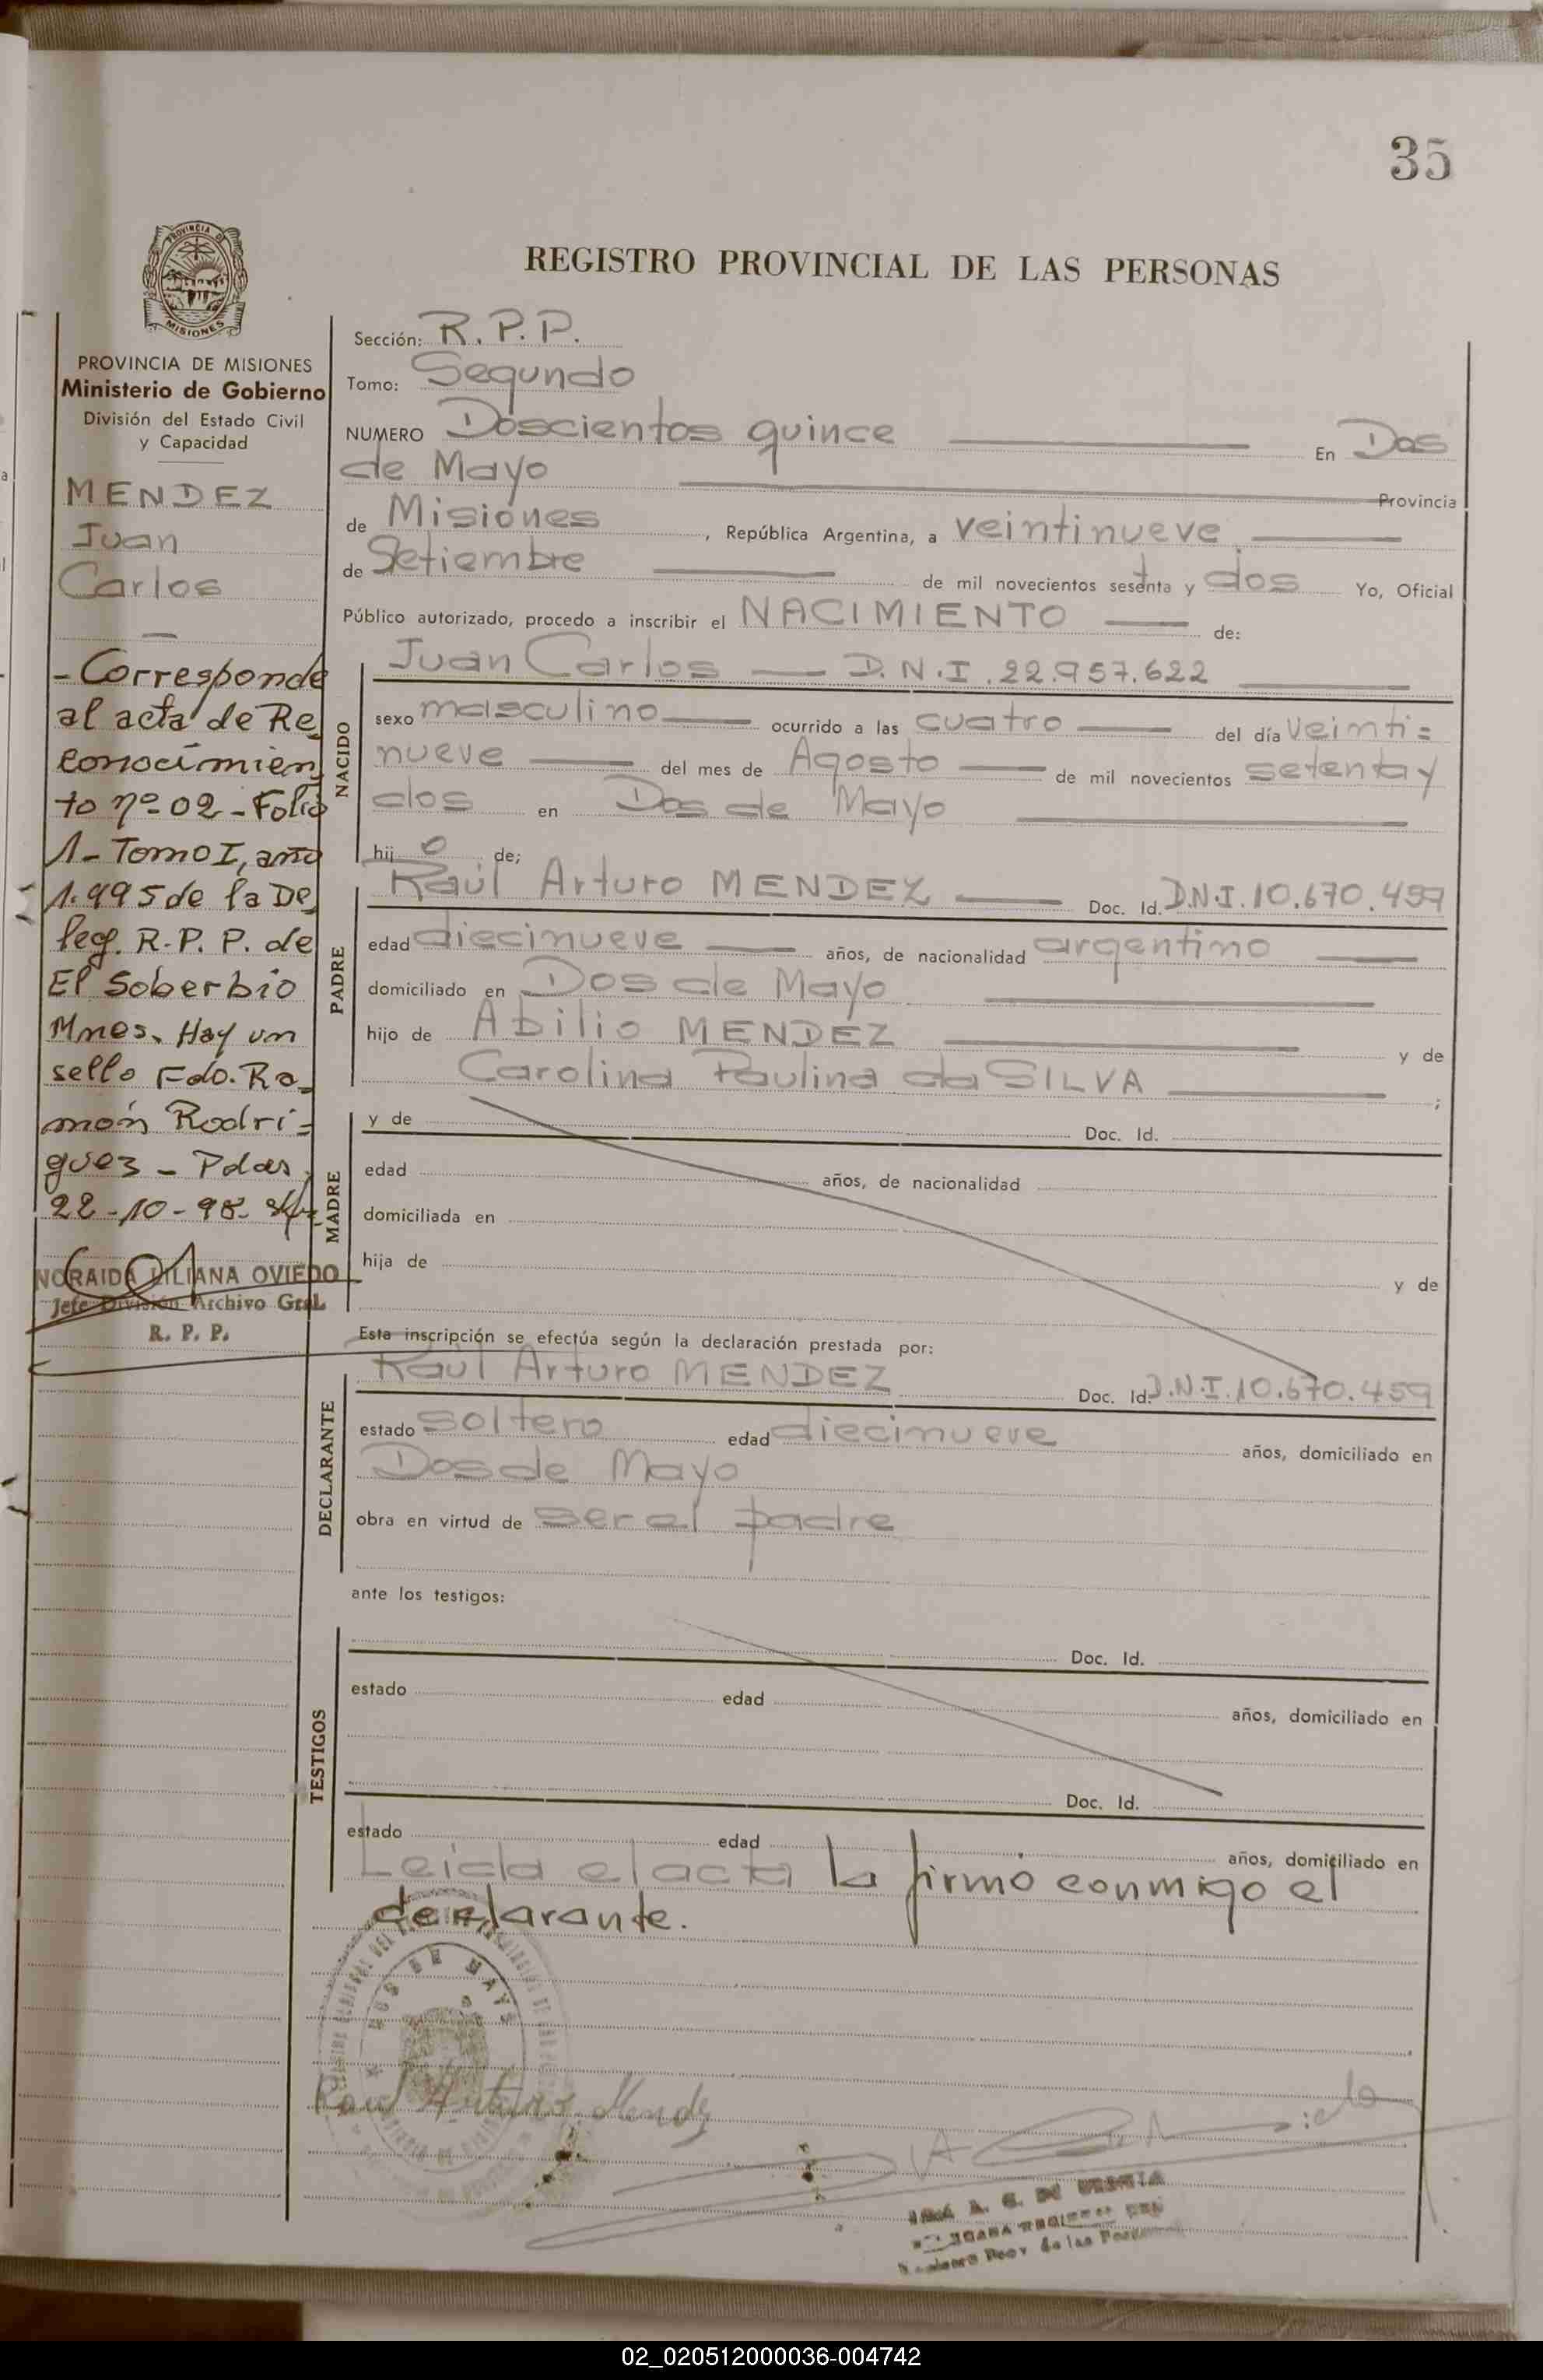 35
PROVINCIA DE
MISIONES
REGISTRO PROVINCIAL DE LAS PERSONAS
PROVINCIA DE MISIONES
Ministerio de Gobierno
División del Estado Civil
y Capacidad
MENDEZ
Juan
Carlos
- Corresponde
al acta de Re
conocimien
to nº 02 - Folio
1 - Tomo I, año
1.995 de la De
leg. R. P. P. de
El Soberbio
Mnes. Hay un
sello Fdo. Ra
món Rodri=
guez - Pdas,
22-10-98-
NORAIDA LILIANA OVIEDO
Jefe División Archivo Gral.
R. P. P.
Sección: R.P.P.
Tomo: Segundo
NUMERO Doscientos quince En Dos
de Mayo Provincia
de Misiones, República Argentina, a veintinueve
de Setiembre de mil novecientos setenta y dos Yo, Oficial
Público autorizado, procedo a inscribir el NACIMIENTO de:
NACIDO
Juan Carlos — D.N.I. 22.957.622
sexo masculino ocurrido a las cuatro del día veinti=
nueve del mes de Agosto de mil novecientos setenta y
dos en Dos de Mayo
hijo de;
PADRE
Raúl Arturo MENDEZ Doc. Id. D.N.I. 10.670.459
edad diecinueve años, de nacionalidad argentino
domiciliado en Dos de Mayo
hijo de Abilio MENDEZ y de
Carolina Paulina da SILVA ;
MADRE
y de Doc. Id.
edad años, de nacionalidad
domiciliada en
hija de y de
Esta inscripción se efectúa según la declaración prestada por:
DECLARANTE
Raúl Arturo MENDEZ Doc. Id. D.N.I. 10.670.459
estado soltero edad diecinueve años, domiciliado en
Dos de Mayo
obra en virtud de ser el padre
ante los testigos:
TESTIGOS
Doc. Id.
estado edad años, domiciliado en
Doc. Id.
estado edad años, domiciliado en
Leida el acta la firmó conmigo el
declarante.
DOS DE MAYO
Raul Arturo Mendez
02_020512000036-004742